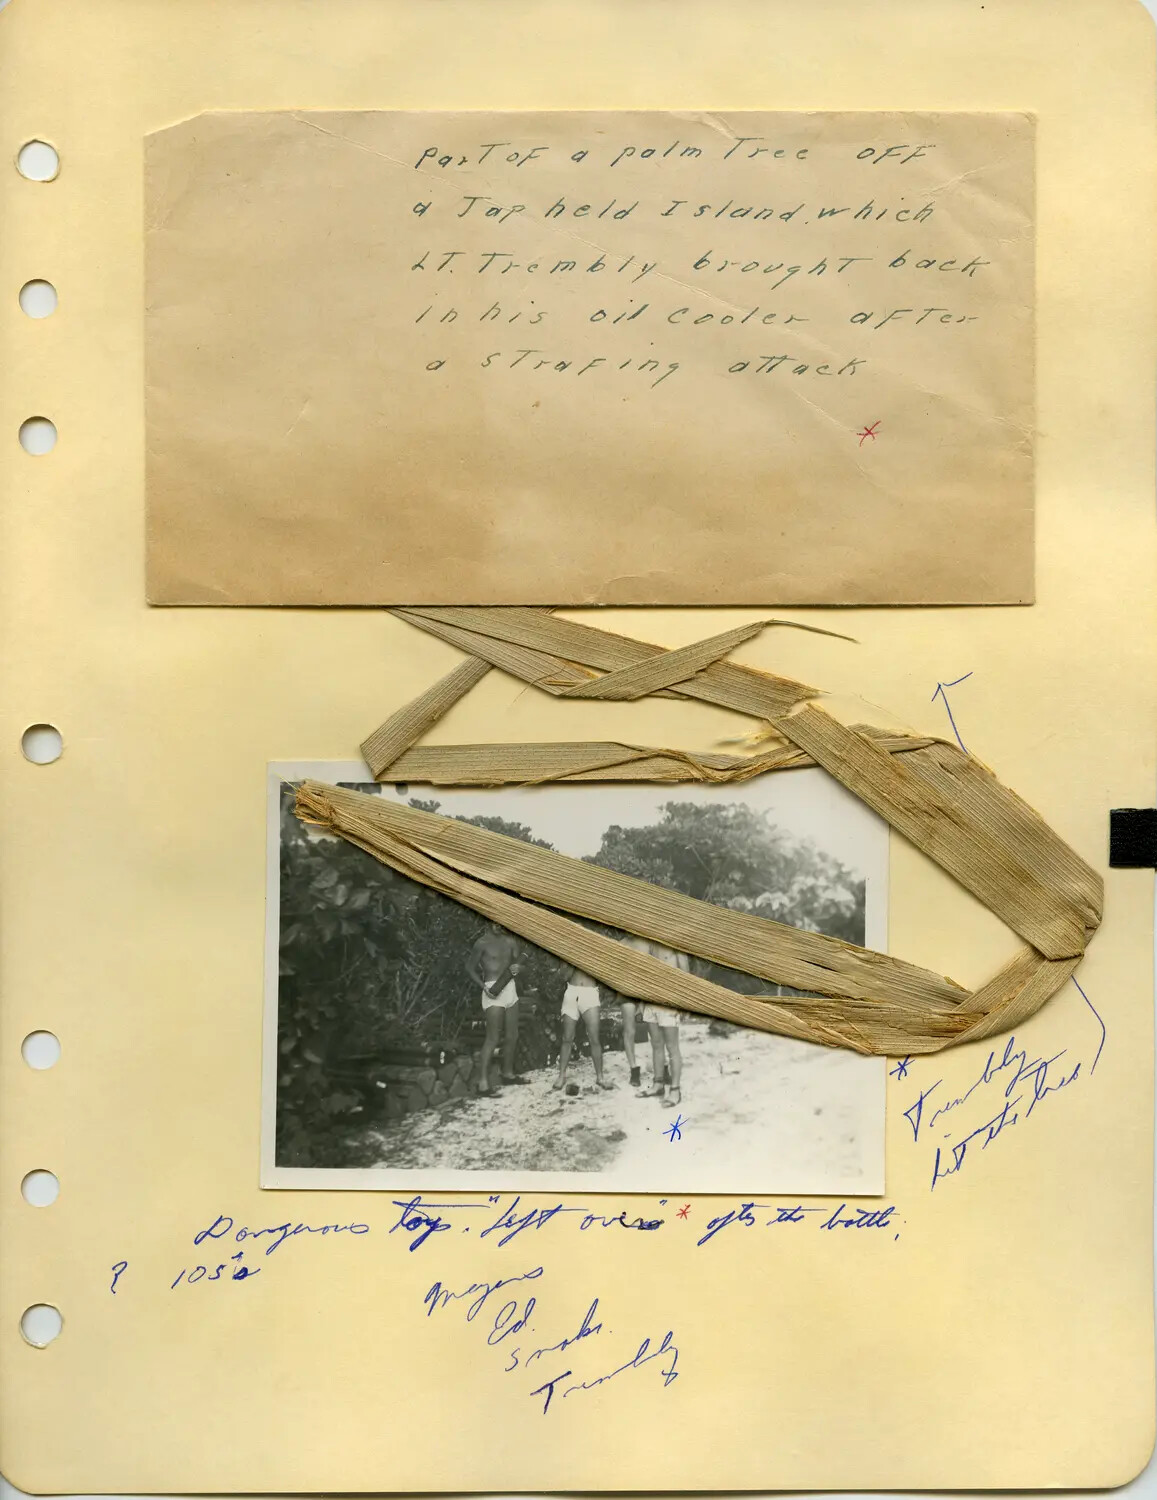 Part of a palm Tree off
a Jap held Island, which
LT. Trembly brought back
in his oil cooler after
a strafing attack
*
*
Trembly
hit the tree
*
Dangerous toys. "left overs" * after the battle,
? 105's
Meyers
Ed.
Trembly